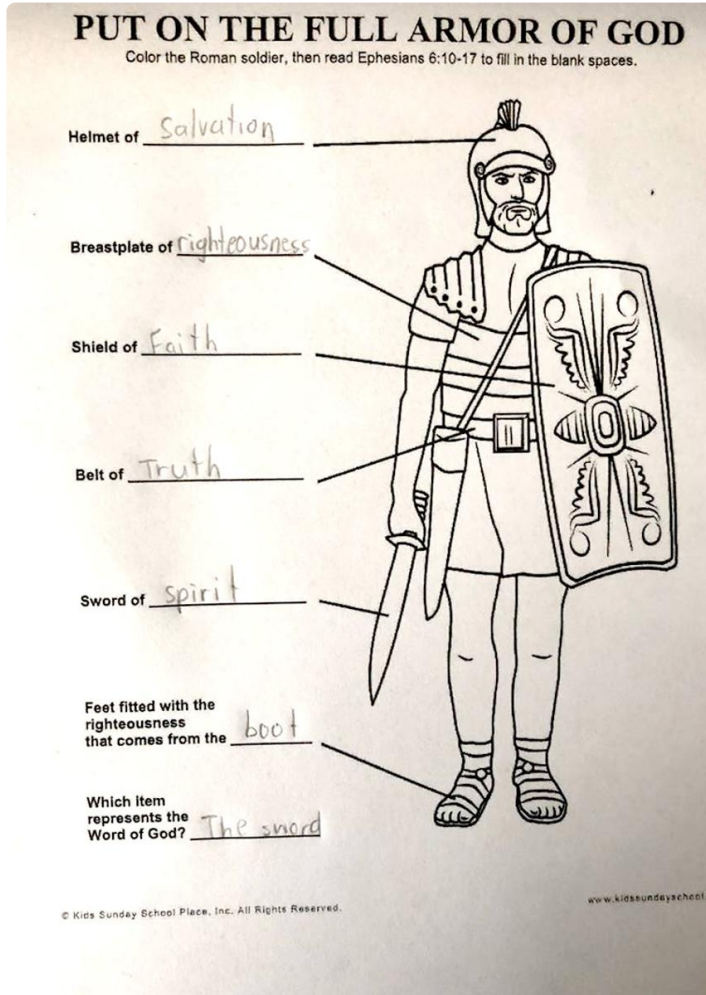 PUT ON THE FULL ARMOR OF GOD
Color the Roman soldier, then read Ephesians 6:10-17 to fill in the blank spaces.
Helmet of Salvation
Breastplate of righteousness
Shield of Faith
Belt of Truth
Sword of spirit
Feet fitted with the
righteousness
that comes from the boot
Which item
represents the
Word of God? The sword
© Kids Sunday School Place, Inc. All Rights Reserved.
www.kidssundayschool.